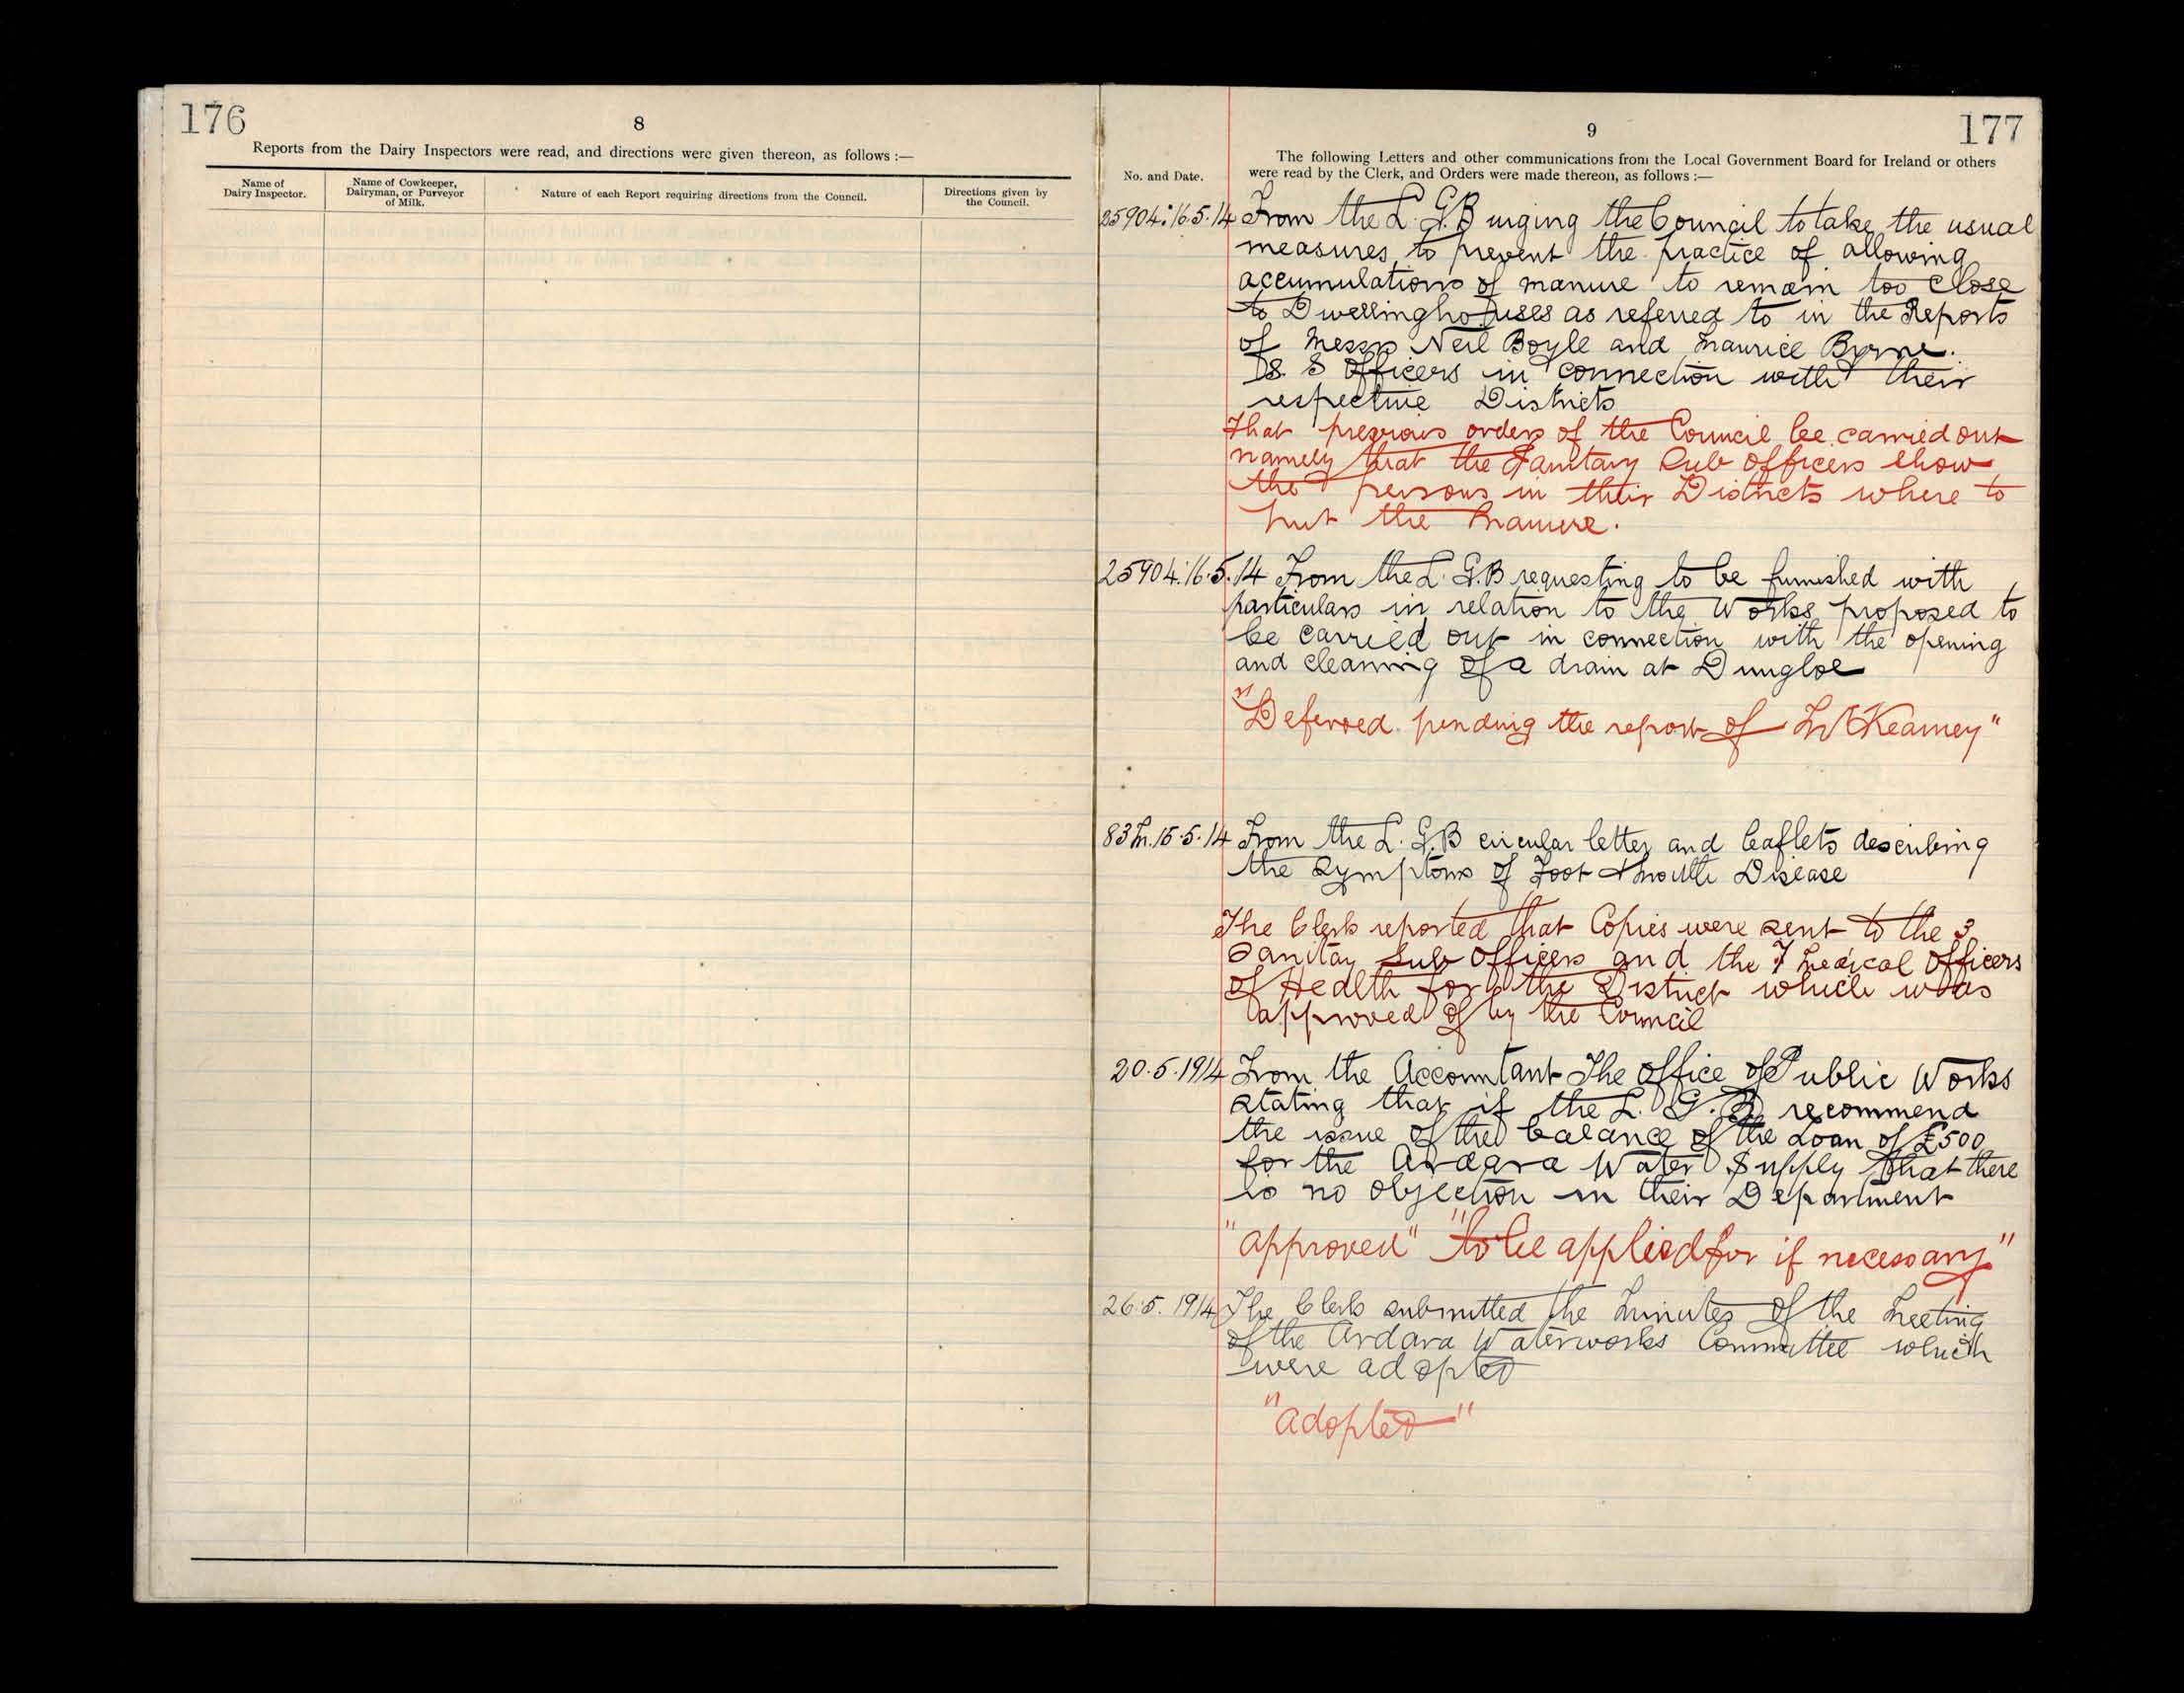 176
8
Reports from the Dairy Inspectors were read, and directions were given thereon, as follows :—
Name of
Dairy Inspector.
Name of Cowkeeper,
Dairyman, or Purveyor
of Milk.
Nature of each Report requiring directions from the Council.
Directions given by
the Council.
177
9
The following Letters and other communications from the Local Government Board for Ireland or others
No. and Date.
were read by the Clerk, and Orders were made thereon, as follows :—
25904:16.5.14 From the L.G.B urging the Council to take the usual
measures to prevent the practice of allowing
accumulations of manure to remain too close
to Dwellinghouses as referred to in the Reports
of Messrs Neil Boyle and Maurice Byrne.
S. S Officers in connection with their
respective Districts
That previous orders of the Council be carried out
namely that the Sanitary Sub Officers show
the persons in their Districts where to
put the Manure.
25904:16.5.14 From the L.G.B requesting to be furnished with
particulars in relation to the Works proposed to
be carried out in connection with the opening
and cleaning of a drain at Dungloe
"Deferred pending the report of Kearney"
83M.15.5.14 From the L.G.B circular letter and leaflets describing
the Symptoms of Foot & Mouth Disease
The Clerk reported that Copies were sent to the 3
Sanitary Sub Officers and the 7 Medical Officers
of Health for the District which was
approved of by the Council
20.5.1914 From the Accountant The Office of Public Works
stating that if the L.G.B recommend
the issue of the balance of the Loan of £500
for the Ardara Water Supply that there
is no objection in their Department
"approved" "to be applied for if necessary"
26.5.1914 The Clerk submitted the Minutes of the Meeting
of the Ardara Waterworks Committee which
were adopted
"adopted"